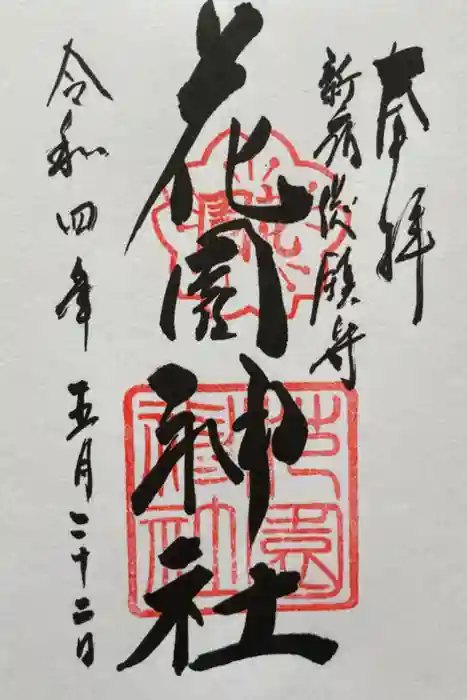 奉拝
新宿総鎮守
花園神社
花園神社
令和四年五月二十二日